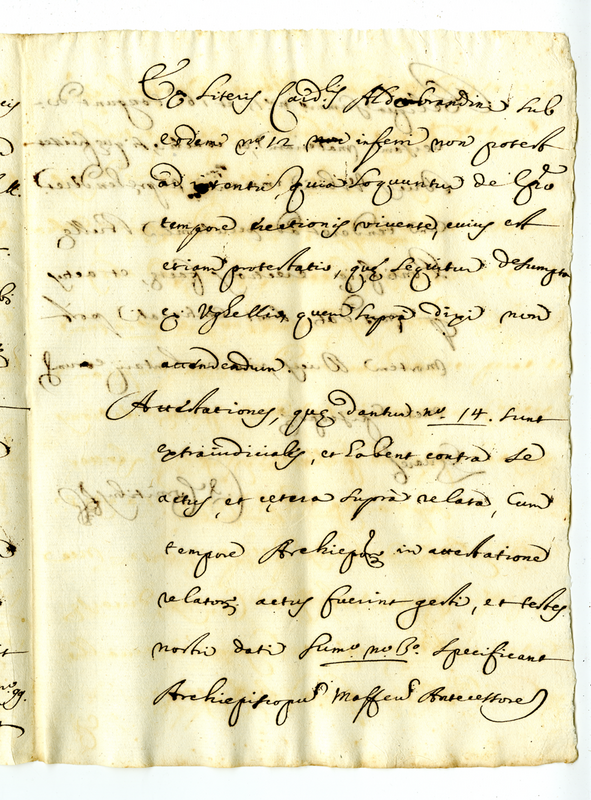 Ex Literis Card.lis Aldobrandini sub
eodem nº 12 inferri non potest
ad intentu, quia loquuntur de
tempore vivente, cuius est
etiam protestatio, quę sequitur desumpta
ex Ughellio, quem supra dixi non
attendendum.
Attestationes, quę dantur nº. 14. sunt
extraiudiciales, et habent contra se
actus, et cętera supra relata, Cum
tempore in attestatione
relator. actus fuerint gesti, et testes
nostri dati Sumº. nº. 3º. specificant
Archiepiscopus Maffeus Antecessore